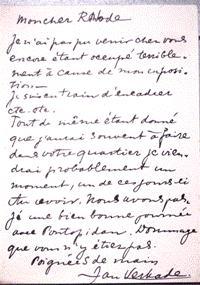 Mon cher R Node
Je n'ai pas pu venir chez vous
encore étant occupé terrible-
ment à cause de mon exposi-
tion —
Je suis en train d'encadrer
etc. etc.
Tout de même étant donné
que j'aurai souvent à faire
dans votre quartier je vien-
drai probablement un
moment, un de ces jours-ci
Nous avons pas-
sé une bien bonne journée
avec Pontopidan. Dommage
que vous n'y étiez pas.
Poignées de main
Jan Verkade.